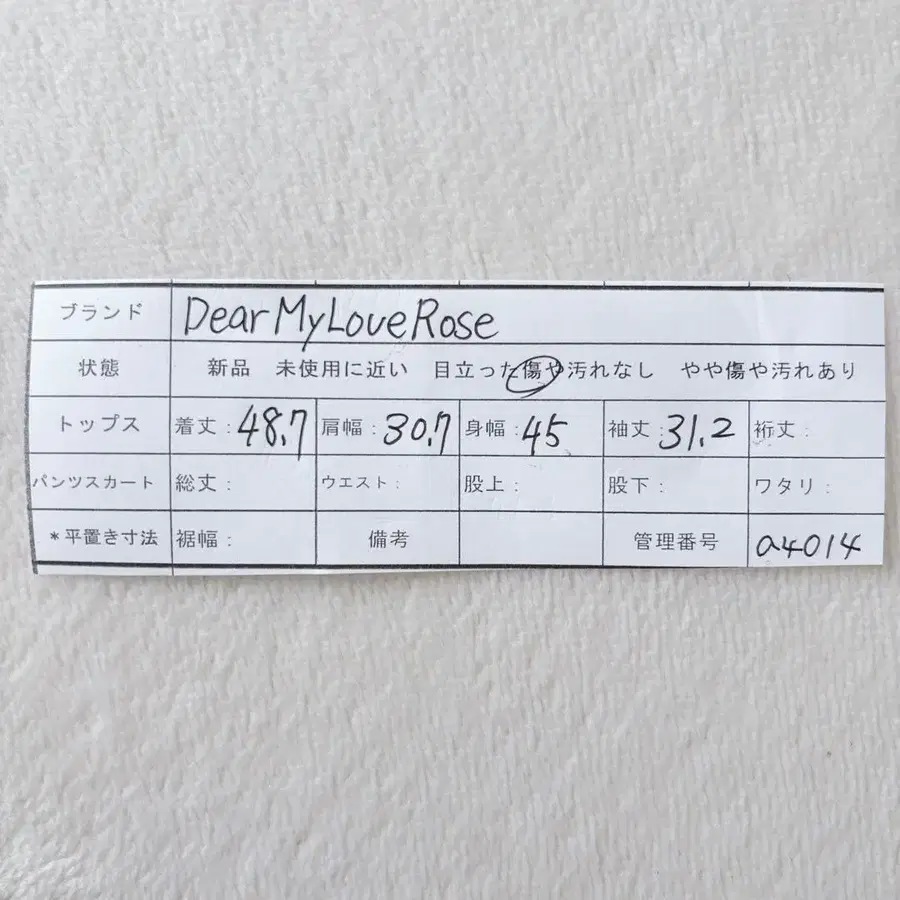 ブランド DearMyLoveRose
状態 新品 未使用に近い 目立った傷や汚れなし やや傷や汚れあり
トップス 着丈: 48.7 肩幅: 30.7 身幅: 45 袖丈: 31.2 裄丈:
パンツスカート 総丈: ウエスト: 股上: 股下: ワタリ:
*平置き寸法 裾幅: 備考 管理番号 a4014